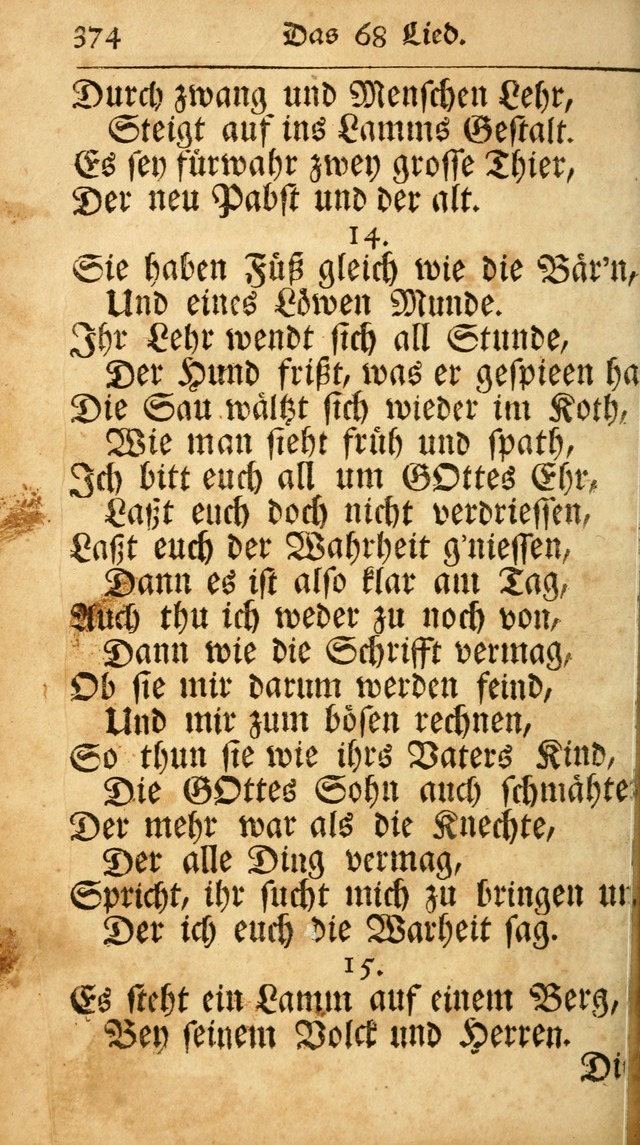 374 Das 68 Lied.
Durch zwang und Menschen Lehr,
Steigt auf ins Lamms Gestalt.
Es sey fürwahr zwey grosse Thier,
Der neu Pabst und der alt.
14.
Sie haben Füß gleich wie die Bär'n,
Und eines Löwen Munde.
Ihr Lehr wendt sich all Stunde,
Der Hund frißt, was er gespieen ha
Die Sau wältzt sich wieder im Koth,
Wie man sieht früh und spath,
Ich bitt euch all um GOttes Ehr,
Laßt euch doch nicht verdriessen,
Laßt euch der Wahrheit g'niessen,
Dann es ist also klar am Tag,
Auch thu ich weder zu noch von,
Dann wie die Schrifft vermag,
Ob sie mir darum werden feind,
Und mir zum bösen rechnen,
So thun sie wie ihrs Vaters Kind,
Die GOttes Sohn auch schmähte
Der mehr war als die Knechte,
Der alle Ding vermag,
Spricht, ihr sucht mich zu bringen
Der ich euch die Warheit sag.
15.
Es steht ein Lamm auf einem Berg,
Bey seinem Volck und Herren.
Di